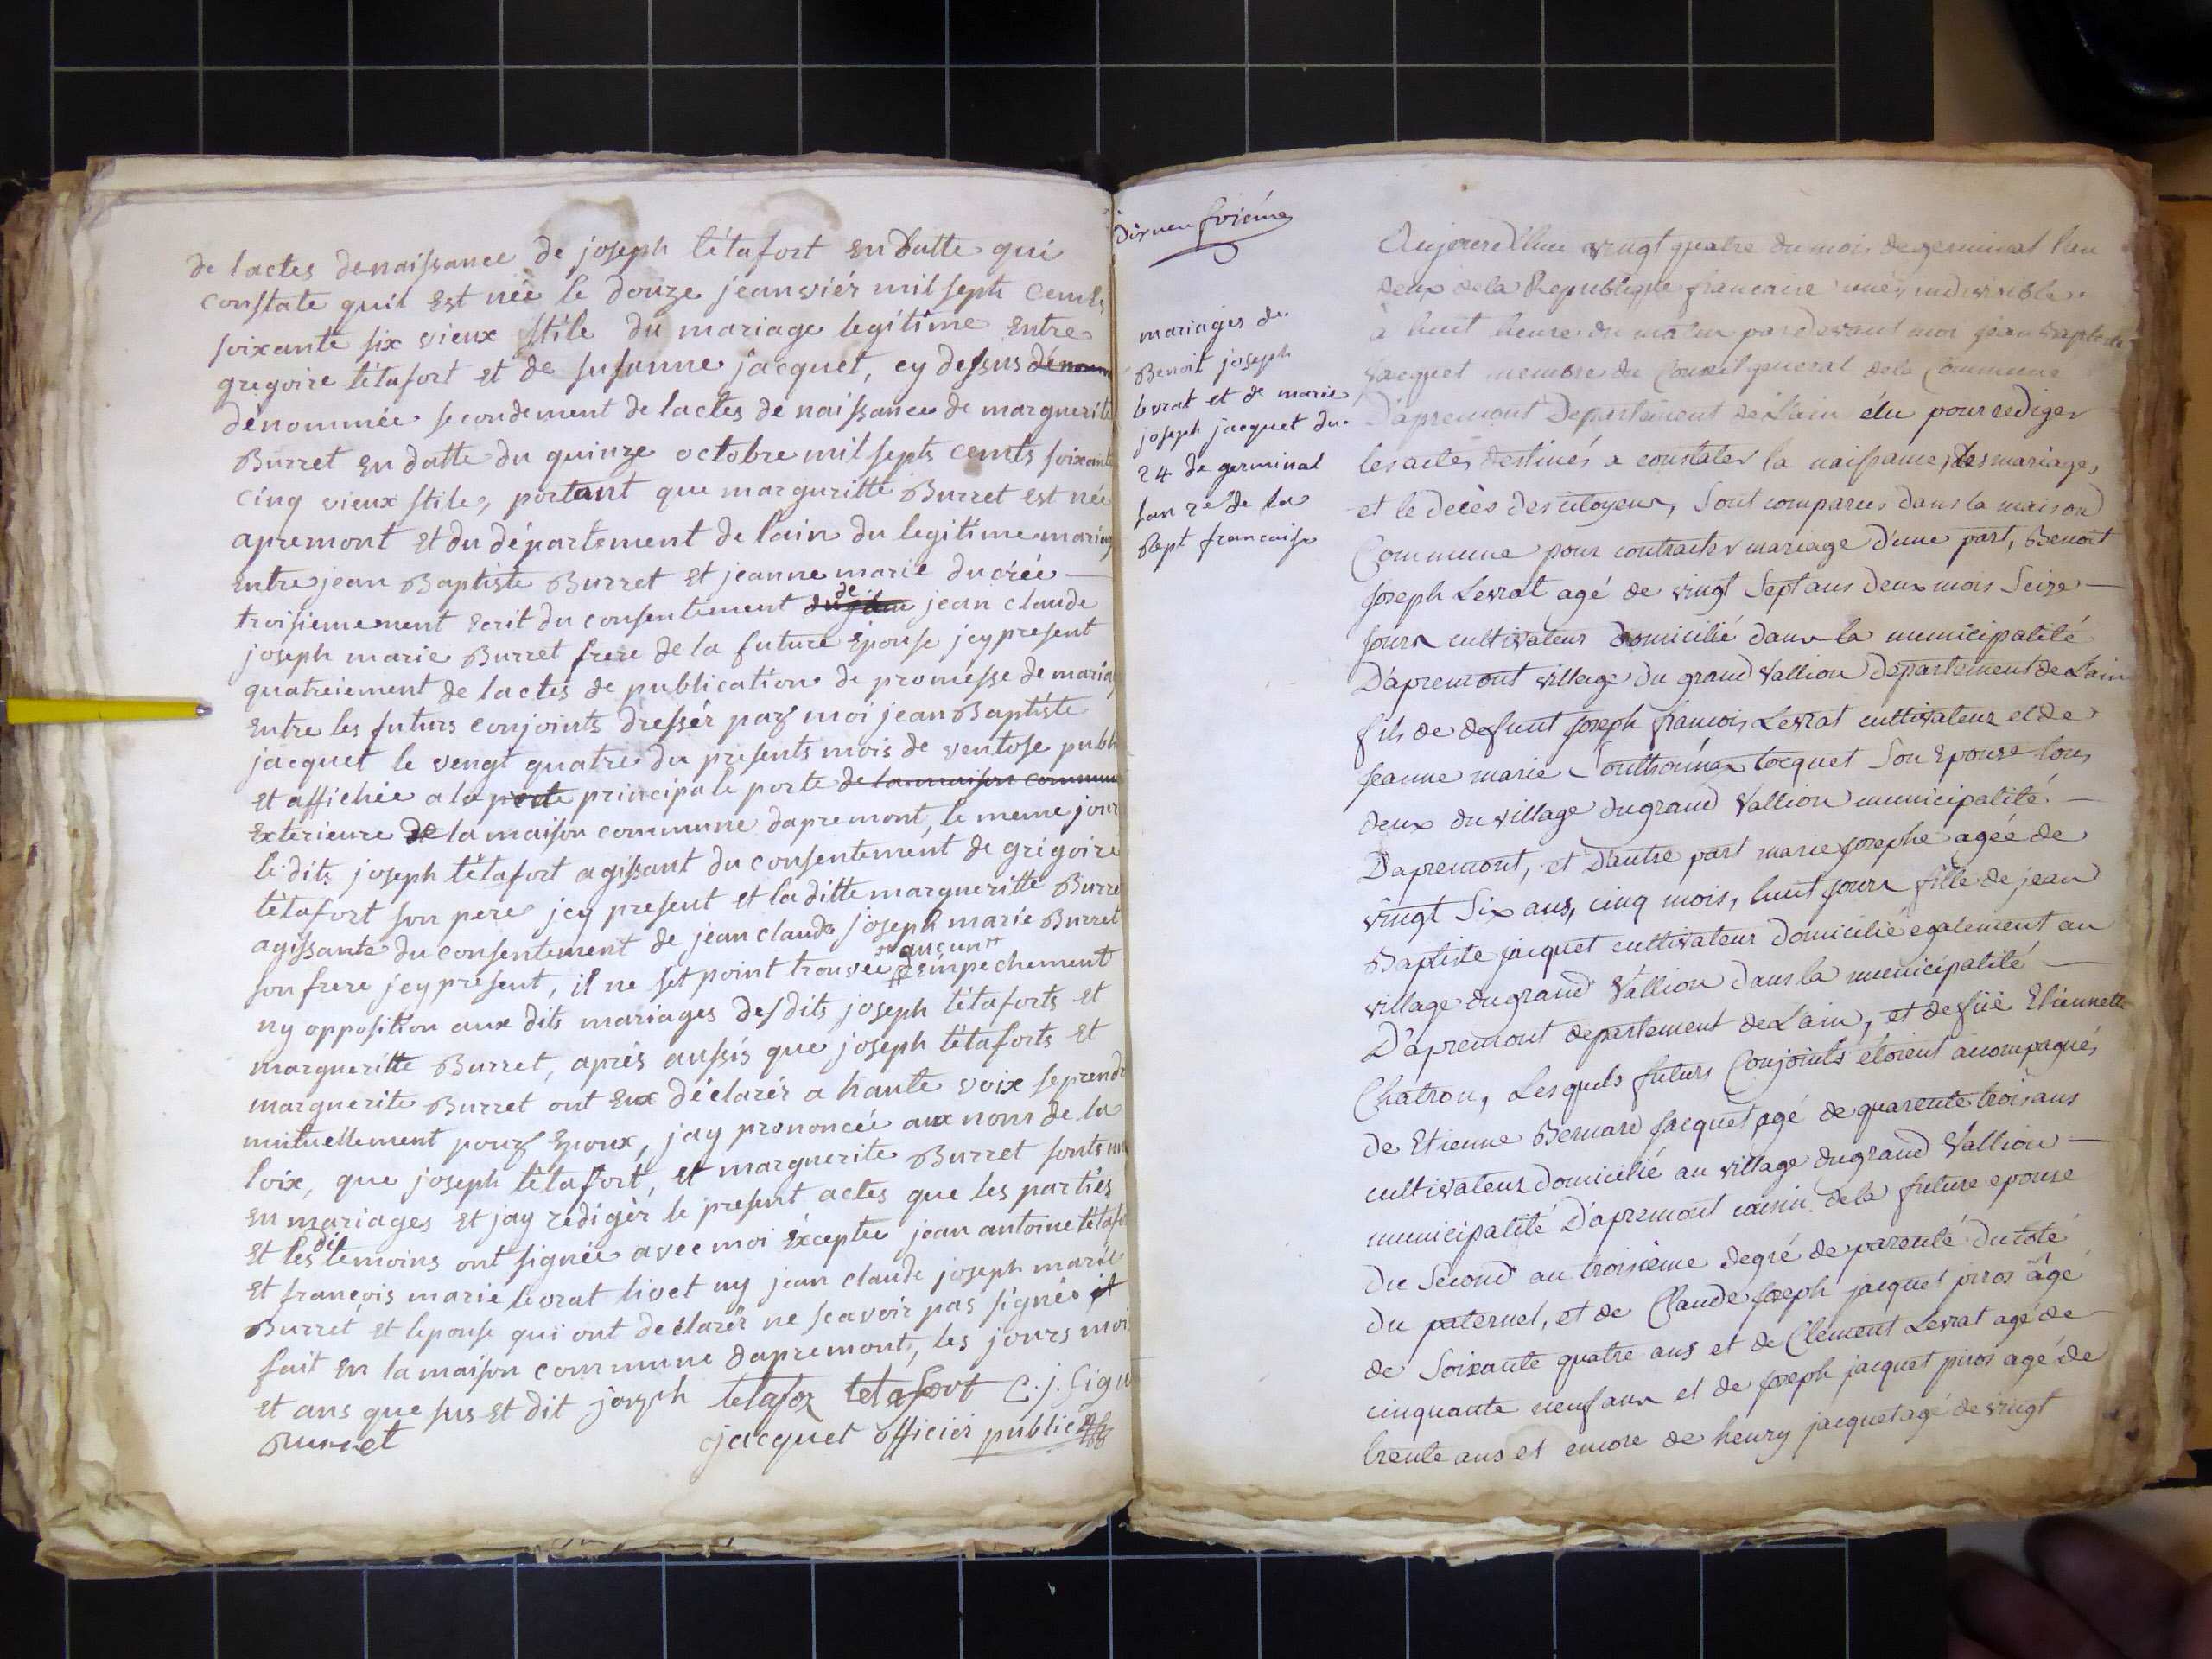 de lactes denaissance de joseph tétafort en datte qui
constate quil Est née le douze jeanviér mil septs cemts
soixante six vieux stile du mariage legitime Entre
gregoire tétafort Et de susanne jacquet, cy dessus dénomm
dénommée secondement de lactes de naissance de marguerite
Burret en datte du quinze octobre mil septs cemts soixante
cinq vieux stile, portant que marguritte Burret est née
apremont Et du département de lain du legitime mariag
Entre jean Baptiste Burret Et jeanne marie ducrée
troisiemement Ecrit du consentement de jean claude
joseph marie Burret frere de la future Epouse jcy present
quatreiement de lactes de publication de promesse de mariag
Entre les futurs conjoints dressér par moi jean Baptiste
jacquet le vengt quatre du presents mois de ventose publi
Et affichée a la porte principale porte de la maison commun
Exterieure de la maison commune dapremont, le meme jour
le dits joseph tétafort agissant du consentement de grigoire
tétafort son pere jcy present et la ditte margueritte Burre
agissante du consentement de jean claude joseph marie Burret
son frere jcy present, il ne set point trouvée aucun Empechement
ny opposition aux dits mariages desdits joseph tétaforts Et
margueritte Burret, aprés aussis que joseph tétaforts Et
marguerite Burret ont Eux déclarér a haute voix seprendr
mutuellement pour Epoux, jay prononcée aux nom de la
loix, que joseph tétafort, et marguerite Burret sonts
En mariages Et jay rédigèr le present actes que les parties
Et les dit temoins ont signée avec moi Exceptée jean antoine tétafo
Et françois marie levrat livet ny jean claude joseph marie
Burret Et lepouse qui ont declarér ne scavoir pas signés
fait En la maison commune dapremont, les jours moi
Et ans que sus Et dit joseph tetafor tetafort C. j.
Burret jacquet officiér public
mariages de
Benoit joseph
levrat et de marie
joseph jacquet du
24 de germinal
lan 2e de la
Rept francaise
Aujourd'hui vingt quatre du mois de germinal l'an
deux de la Republique francaise une, indivisible
à huit heure du matin pardevant moi jean baptiste
Jacquet membre du Conseil general de la Commune
D'apremont Departement de L'ain élu pour rediger
les actes destinés a constater la naissance, les mariages
et le décès des citoyens, sont comparus dans la maison
Commune pour contracter mariage d'une part, Benoit
Joseph Levrat agé de vingt Sept ans deux mois Seize
Jours cultivateur domicilié dans la municipalité
D'apremont village du grand Vallion departement de L'ain
fils de defunt Joseph francois Levrat cultivateur et de
Jeanne marie tocquet Son Epouse tous
deux du village du grand Vallion municipalité
D'apremont, et D'autre part marie Josephe agée de
vingt Six ans, cinq mois, huit Jours fille de jean
Baptiste jacquet cultivateur domicilié egalement au
village du grand Vallion dans la municipalité
D'apremont departement de L'ain, et de Etiennette
Chatron, Lesquels futurs Conjoints étoient acompagnés
de Etienne Bernard Jacquet agé de quarente trois ans
cultivateur domicilié au village du grand Vallion
municipalité D'apremont cousin de la future epouse
du Second au troisième degré de parenté du coté
du paternel, et de Claude Joseph jacquet piros agé
de Soixante quatre ans et de Clement Levrat agé de
cinquante neuf ans et de Joseph jacquet piros agé de
trente ans et encore de henry jacquet agé de vingt